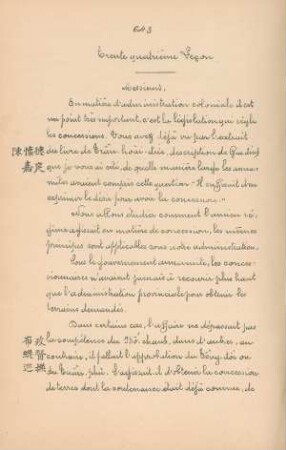 643
Trente quatrième Leçon
Messieurs,
En matière d'administration coloniale il est
un point très important, c'est la législation qui règle
les concessions. Vous avez déjà vu par l'extrait
du livre de Trần hoài đức, description de Gia định
陳懷德
嘉定
que je vous ai cité, de quelle manière large les anna-
mites avaient compris cette question: "Il suffisait d'ex-
primer le désir pour avoir la concession."
Nous allons étudier comment l'ancien ré-
gime agissait en matière de concession, les mêmes
principes sont applicables sous notre administration.
Sous le gouvernement annamite, les conces-
sionnaires n'avaient jamais à recourir plus haut
que l'administration provinciale pour obtenir les
terrains demandés.
Dans certains cas, l'affaire ne dépassait pas
la compétence du Bố chánh, dans d'autres, au
contraire, il fallait l'approbation du Tổng đốc ou
du Tuần phủ. S'agissait-il d'obtenir la concession
de terres dont la contenance était déjà connue, de